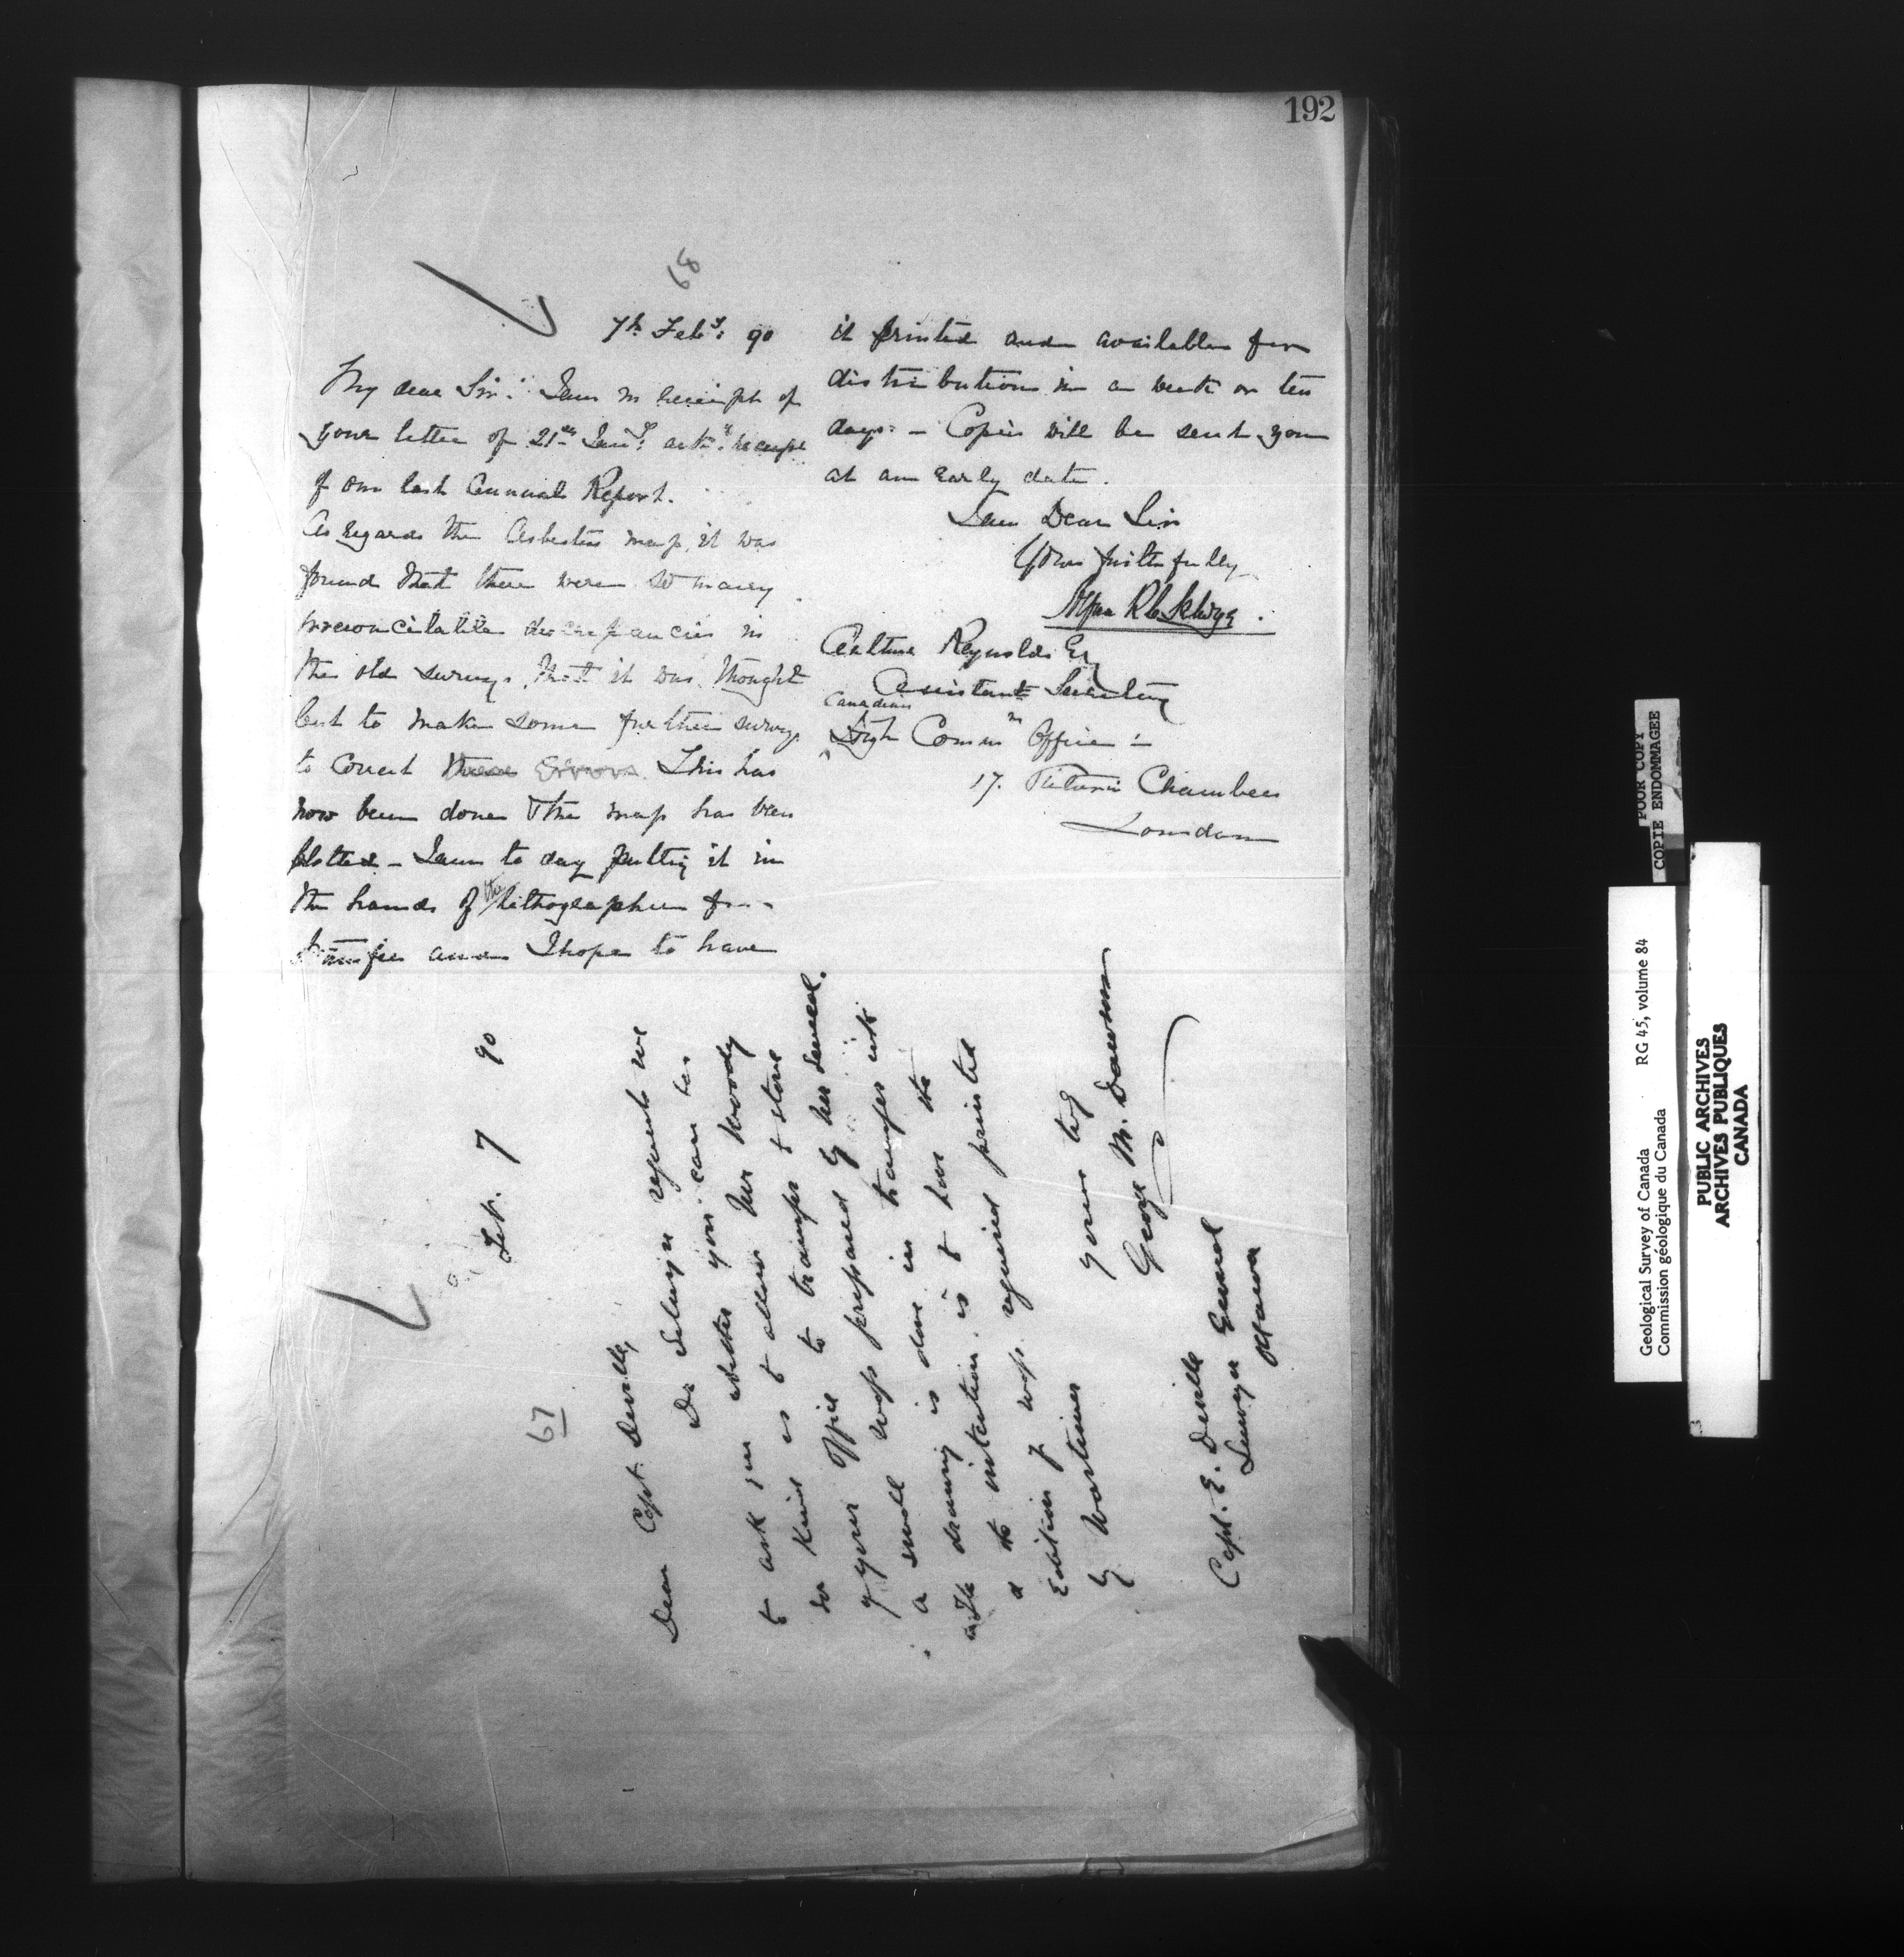 192
68
7th Feby: 90
My dear Sir: I am in receipt of
your letter of 21st Jany: ackg. receipt
of our last Annual Report.
As regards the Asbestos map, it was
found that there were so many
irreconcilable discrepancies in
the old surveys, that it was thought
best to make some further surveys
to correct these errors. This has
now been done & the map has been
plotted - I am to day putting it in
the hands of the lithographer for
transfer and I hope to have
it printed and available for
distribution in a week or ten
days: - Copies will be sent you
at an early date.
I am Dear Sir
Yours faithfully
Alfred R C Selwyn.
Arthur Reynolds Esq
Assistant Secretary
Canadian
High Commrs Office
17. Victoria Chambers
London
67
Feb. 7 90
Dear Capt. Deville,
Dr Selwyn requests me
to ask you whether you can be
so kind as to allow Mr Moody
of your office to transfer to stone
a small map prepared by Mr Senecal.
The drawing is done in transfer ink
& the intention is to have the
Edition of map required printed
by Mortimer
yours truly
George M. Dawson
Capt. E. Deville
Surveyor General
Ottawa
POOR COPY
COPIE ENDOMMAGEE
Geological Survey of Canada RG 45, volume 84
Commission géologique du Canada
PUBLIC ARCHIVES
ARCHIVES PUBLIQUES
CANADA